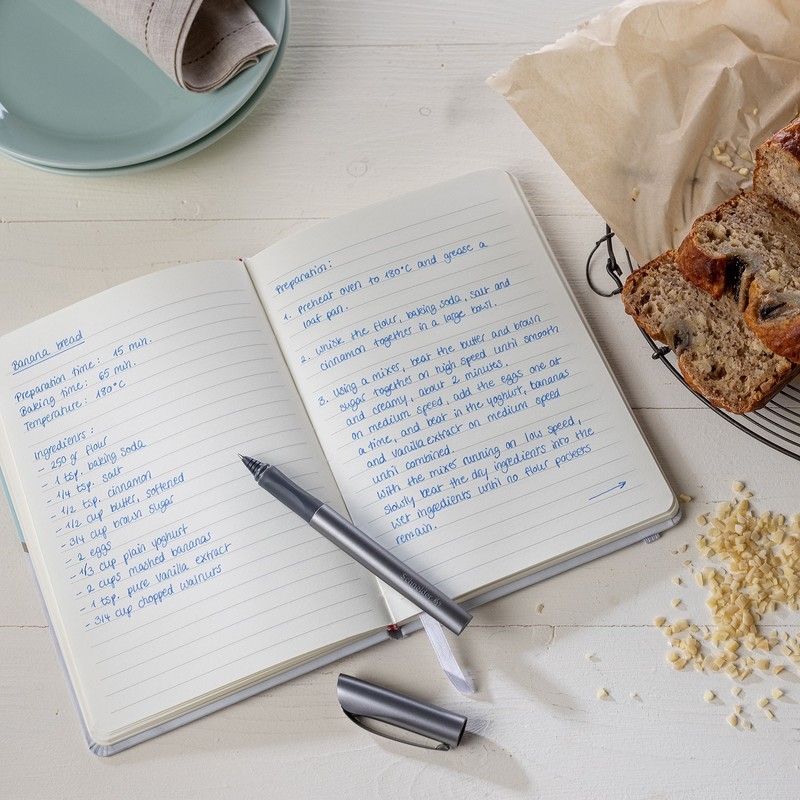 Banana bread
Preparation time: 15 min.
Baking time: 65 min.
Temperature: 180°C
Ingredients:
- 250 gr flour
- 1 tsp. baking soda
- 1/4 tsp. salt
- 1/2 tsp. cinnamon
- 1/2 cup butter, softened
- 3/4 cup brown sugar
- 2 eggs
- 1/3 cup plain yoghurt
- 2 cups mashed bananas
- 1 tsp. pure vanilla extract
- 3/4 cup chopped walnuts
Preparation:
1. Preheat oven to 180°C and grease a
loaf pan.
2. Whisk the flour, baking soda, salt and
cinnamon together in a large bowl.
3. Using a mixer, beat the butter and brown
sugar together on high speed until smooth
and creamy, about 2 minutes.
On medium speed, add the eggs one at
a time, and beat in the yoghurt, bananas
and vanilla extract on medium speed
until combined.
With the mixer running on low speed,
slowly beat the dry ingredients into the
wet ingredients until no flour pockets
remain.
Schneider